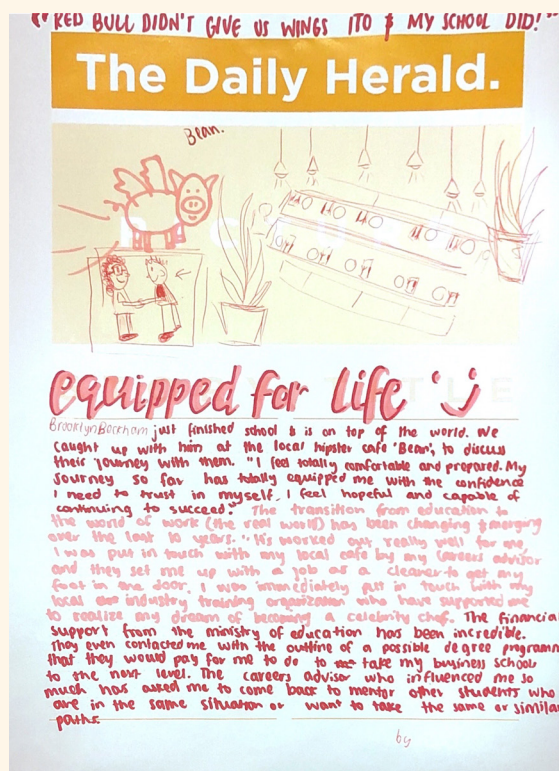 "RED BULL DIDN'T GIVE US WINGS ITO & MY SCHOOL DID!"
The Daily Herald.
Bean.
PICTURE
equipped for life
Brooklyn Beckham just finished school & is on top of the world. We
caught up with him at the local hipster cafe 'Bean', to discuss
their journey with them. "I feel totally comfortable and prepared. My
journey so far has totally equipped me with the confidence
I need to trust in myself. I feel hopeful and capable of
continuing to succeed." The transition from education to
the world of work (the real world) has been changing & merging
over the last 10 years. "It's worked out really well for me,
I was put in touch with my local cafe by my careers advisor
and they set me up with a job as a cleaner to get my
foot in the door. I was immediately put in touch with my
local industry training organization who have supported me
to realize my dream of becoming a celebrity chef. The financial
support from the ministry of education has been incredible.
They even contacted me with the outline of a possible degree programm
that they would pay for me to do to take my business school
to the next level. The careers advisor who influenced me so
much has asked me to come back to mentor other students who
are in the same situation or want to take the same or similar
paths.
by